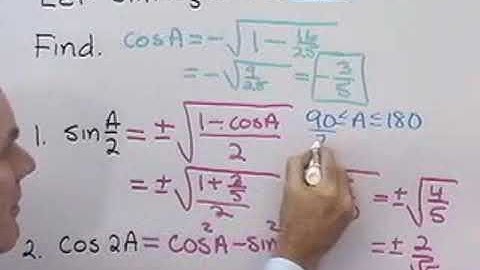 Find. cosA = -√(1 - 16/25)
= -√(9/25) = -3/5
1. sin A/2 = ±√((1 - cosA)/2) 90/2 ≤ A ≤ 180
= ±√((1 + 3/5)/2) = ±√(4/5)
2. cos2A = cos²A - sin = ± 2/√5